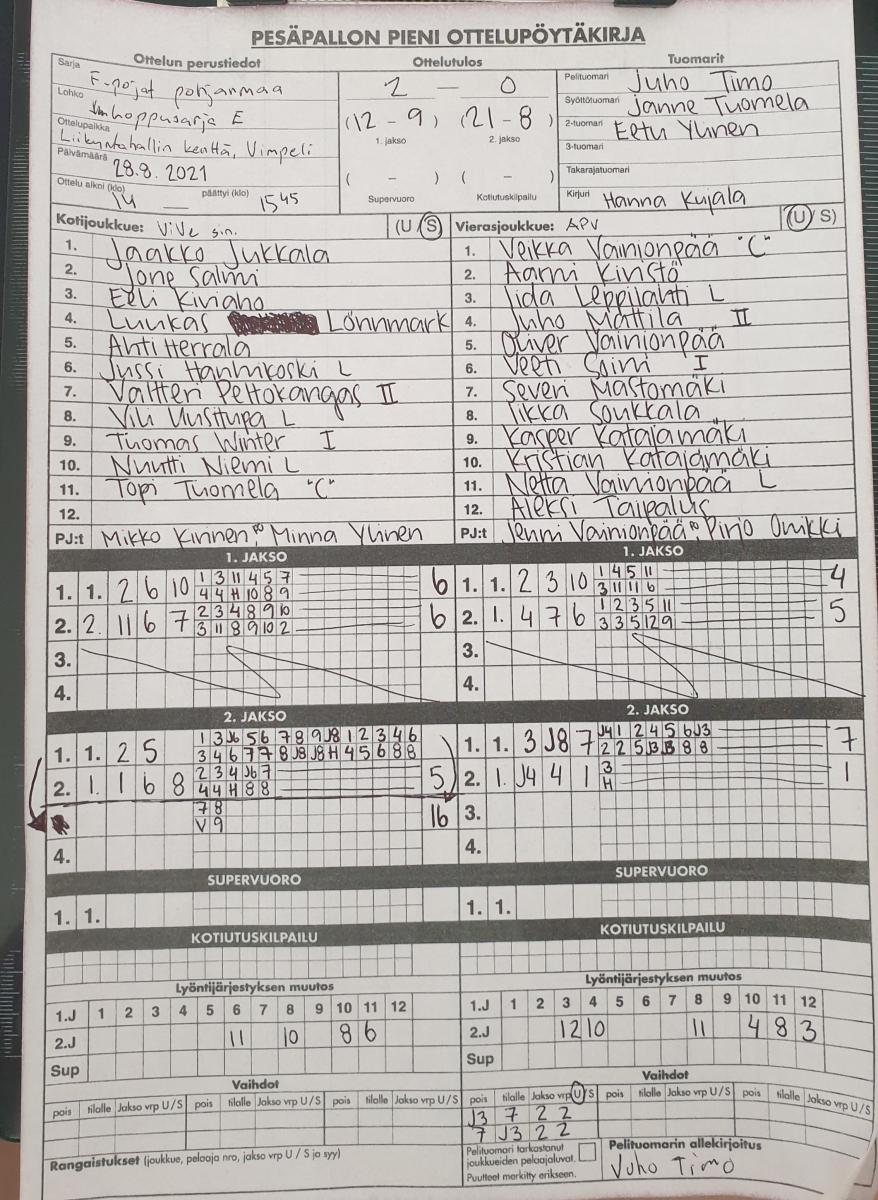 PESÄPALLON PIENI OTTELUPÖYTÄKIRJA
Ottelun perustiedot
Ottelutulos
Tuomarit
Sarja F-pojat pohjanmaa
Lohko
Imhoppusarja E
Ottelupaikka
Liikuntahallin kenttä, Vimpeli
Päivämäärä 28.8.2021
Ottelu alkoi (klo) 14 — päättyi (klo) 1545
2 — 0
(12 - 9) (21 - 8)
1. jakso 2. jakso
( - ) ( - )
Supervuoro Kotiutuskilpailu
Pelituomari Juho Timo
Syöttötuomari Janne Tuomela
2-tuomari Eetu Ylinen
3-tuomari
Takarajatuomari
Kirjuri Hanna Kujala
Kotijoukkue: ViVe sin. (U / S)
1. Jaakko Jukkala
2. Jone Salmi
3. Eeli Kiviaho
4. Luukas Lönnmark
5. Ahti Herrala
6. Jussi Hanhikoski L
7. Valtteri Peltokangas II
8. Vili Uusitupa L
9. Tuomas Winter I
10. Nuutti Niemi L
11. Topi Tuomela "C"
12.
PJ:t Mikko Kinnen, Minna Ylinen
Vierasjoukkue: APV (U / S)
1. Veikka Vainionpää "C"
2. Aarni Kivistö
3. Iida Leppilahti L
4. Juho Mattila II
5. Oliver Vainionpää
6. Veeti Soini I
7. Severi Mastomäki
8. Iikka Soukkala
9. Kasper Katajamäki
10. Kristian Katajamäki
11. Netta Vainionpää L
12. Aleksi Taipalus
PJ:t Jenni Vainionpää, Pirjo Onikki
1. JAKSO
1. 1. 2 6 10 1 3 11 4 5 7 6
4 4 H 10 8 9
2. 2. 11 6 7 2 3 4 8 9 10 6
3 11 8 9 10 2
3.
4.
1. JAKSO
1. 1. 2 3 10 1 4 5 11 4
3 11 11 6
2. 1. 4 7 6 1 2 3 5 11 5
3 3 5 12 9
3.
4.
2. JAKSO
1. 1. 2 5 1 3 J6 5 6 7 8 9 J8 1 2 3 4 6
3 4 6 7 7 8 J8 J8 H 4 5 6 8 8
2. 1. 1 6 8 2 3 4 J6 7 5
4 4 H 8 8
7 8 16
V 9
4.
2. JAKSO
1. 1. 3 J8 7 J4 1 2 4 5 6 J3 7
2 2 5 J3 8 8
2. 1. J4 4 1 3 1
H
3.
4.
SUPERVUORO
1. 1.
SUPERVUORO
1. 1.
KOTIUTUSKILPAILU
KOTIUTUSKILPAILU
Lyöntijärjestyksen muutos
1.J 1 2 3 4 5 6 7 8 9 10 11 12
2.J 11 10 8 6
Sup
Lyöntijärjestyksen muutos
1.J 1 2 3 4 5 6 7 8 9 10 11 12
2.J 12 10 11 4 8 3
Sup
Vaihdot
pois tilalle Jakso vrp U / S pois tilalle Jakso vrp U / S pois tilalle Jakso vrp U / S
Vaihdot
pois tilalle Jakso vrp U / S pois tilalle Jakso vrp U / S pois tilalle Jakso vrp U / S
J3 7 2 2
7 J3 2 2
Rangaistukset (joukkue, pelaaja nro, jakso vrp U / S ja syy)
Pelituomari tarkastanut
joukkueiden pelaajaluvat.
Puutteet merkitty erikseen.
Pelituomarin allekirjoitus
Juho Timo